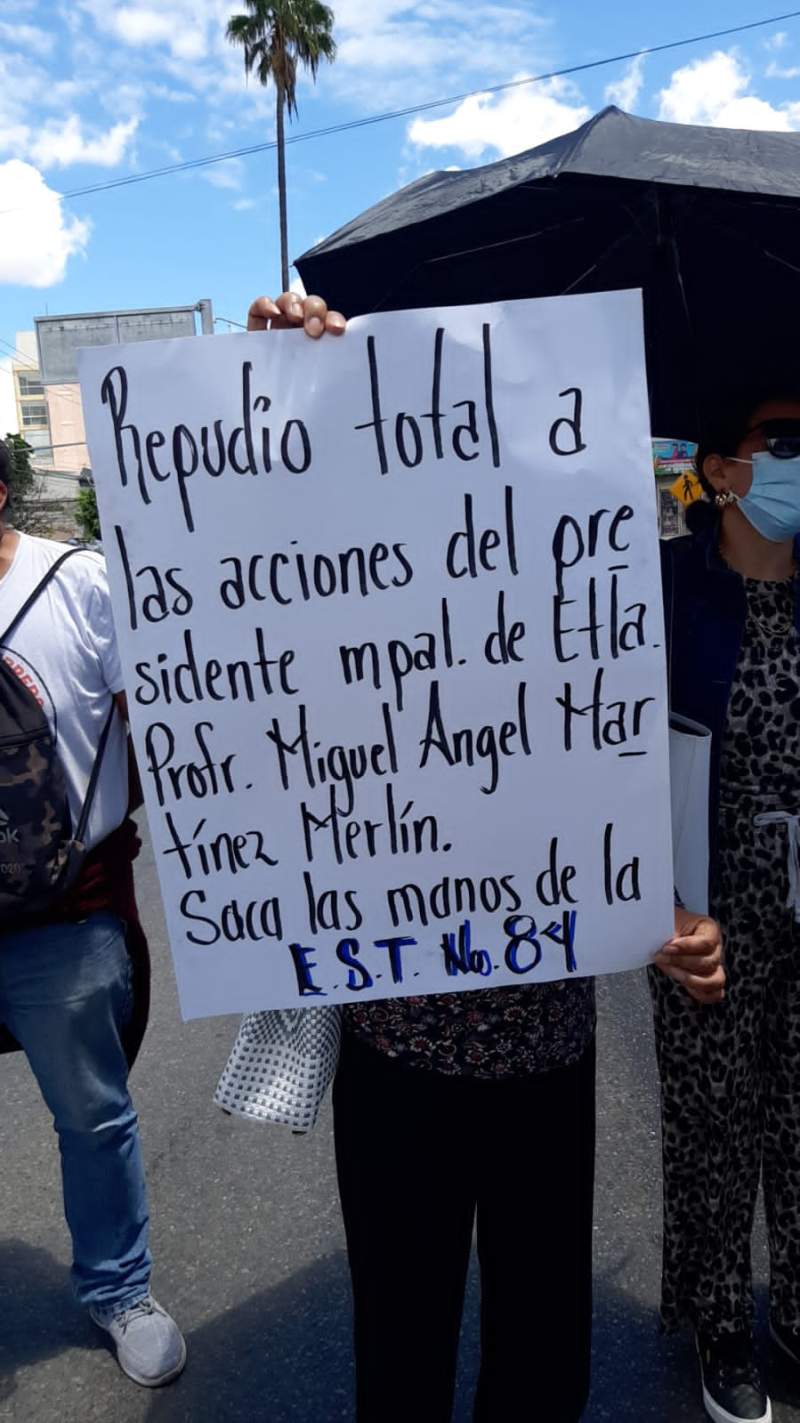 Repudio total a
las acciones del pre
sidente mpal. de Etla.
Profr. Miguel Angel Mar
tínez Merlín.
Saca las manos de la
E.S.T. No. 84